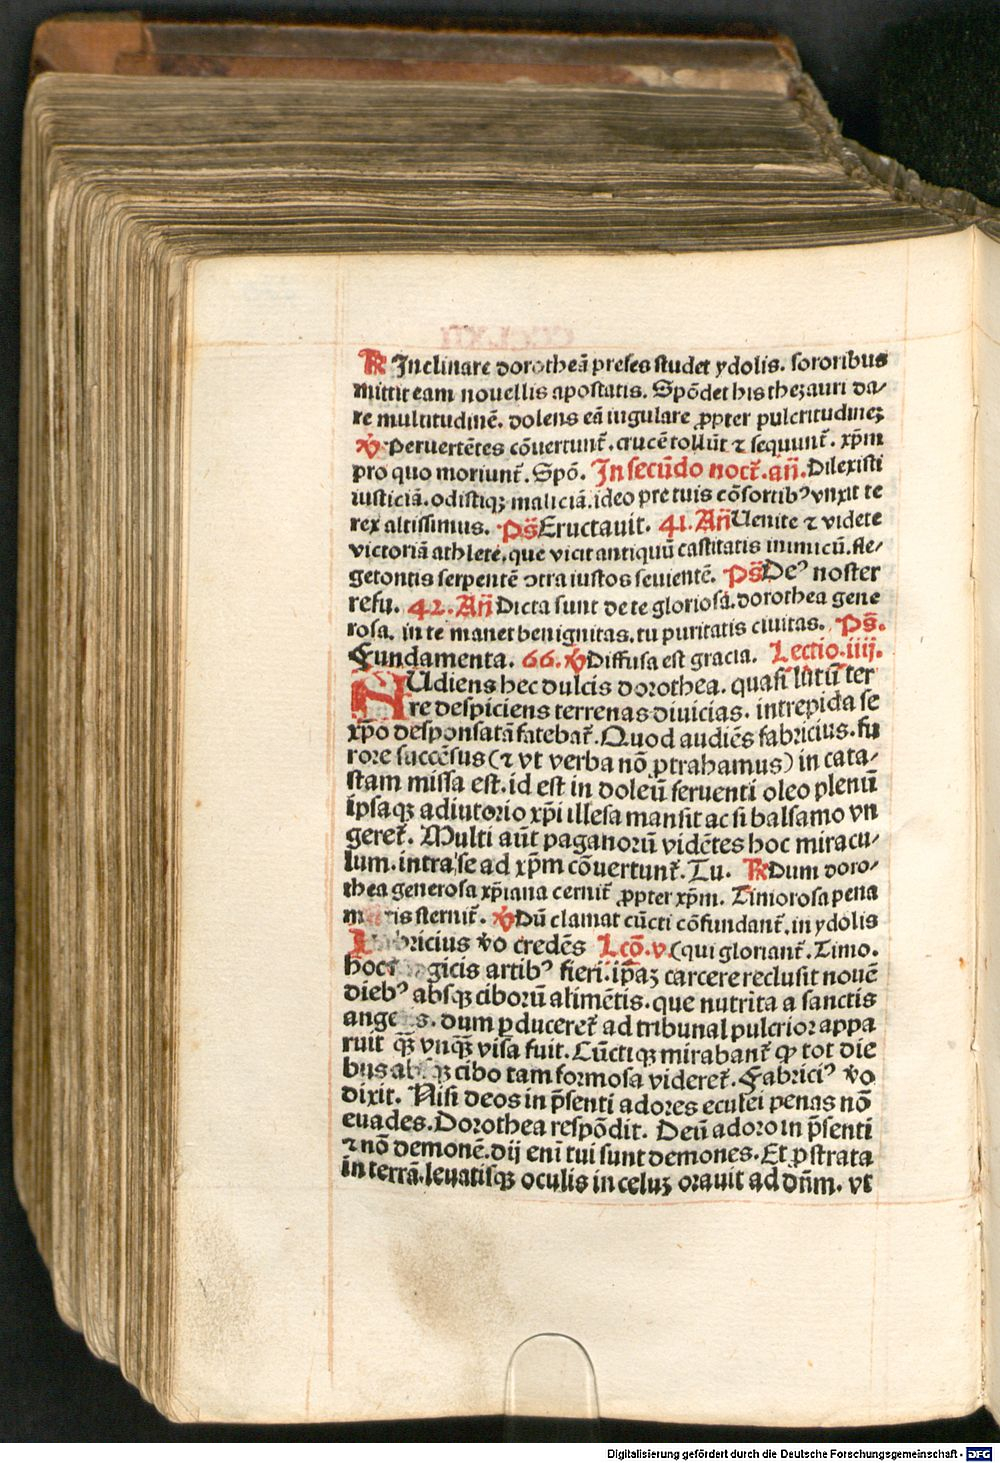 ℟ Inclinare dorotheā preses studet ydolis. sororibus
mittit eam nouellis apostatis. Spōdet his thezauri da-
re multitudinē. dolens eā iugulare ꝓpter pulcritudinēʒ
℣ Peruertētes cōuertunt᷑. crucē tollūt ⁊ sequunt᷑. xp̄m
pro quo moriunt᷑. Spō. In secūdo noct᷑. an̄. Dilexisti
iusticiā. odistiqꝫ maliciā. ideo pre tuis cōsortibꝰ vnxit te
rex altissimus. Ps̄ Eructauit. 41. An̄ Uenite ⁊ videte
victoriā athlete. que vicit antiquū castitatis inimicū. fle-
getontis serpentē ↄtra iustos seuientē. Ps̄ Deꝰ noster
refu. 42. An̄ Dicta sunt de te gloriosa. dorothea gene
rosa. in te manet benignitas. tu puritatis ciuitas. Ps̄.
Fundamenta. 66. ℣ Diffusa est gracia. Lectio. iiij.
AUdiens hec dulcis dorothea. quasi lutū ter
re despiciens terrenas diuicias. intrepida se
xp̄o desponsatā fatebat᷑. Quod audiēs fabricius. fu
rore succēsus (⁊ vt verba nō ꝓtrahamus) in cata-
stam missa est. id est in doleū feruenti oleo plenū
ipsaqꝫ adiutorio xp̄i illesa mansit ac si balsamo vn
geret᷑. Multi aūt paganorū vidētes hoc miracu-
lum. intra se ad xp̄m cōuertunt᷑. Tu. ℟ Dum doro-
thea generosa xp̄iana cernit᷑ ꝓpter xp̄m. Timorosa pena
mortis sternit᷑. ℣ Dū clamat cūcti cōfundant᷑. in ydolis
Fabricius ꝟo credēs Lcō. v. (qui gloriant᷑. Timo.
hoc magicis artibꝰ fieri. ip̄aʒ carcere reclusit nouē
diebꝰ absqꝫ ciborū alimētis. que nutrita a sanctis
angelis. dum ꝑduceret᷑ ad tribunal pulcrior appa
ruit qꝫ̄ vnqꝫ̄ visa fuit. Cūctiqꝫ mirabant᷑ ꝙ tot die
bus absqꝫ cibo tam formosa videret᷑. Fabriciꝰ ꝟo
dixit. Nisi deos in p̄senti adores eculei penas nō
euades. Dorothea respōdit. Deū adoro in p̄senti
⁊ nō demonē. dij eni tui sunt demones. Et ꝓstrata
in terrā. leuatisqꝫ oculis in celuʒ orauit ad dn̄m. vt
Digitalisierung gefördert durch die Deutsche Forschungsgemeinschaft - DFG